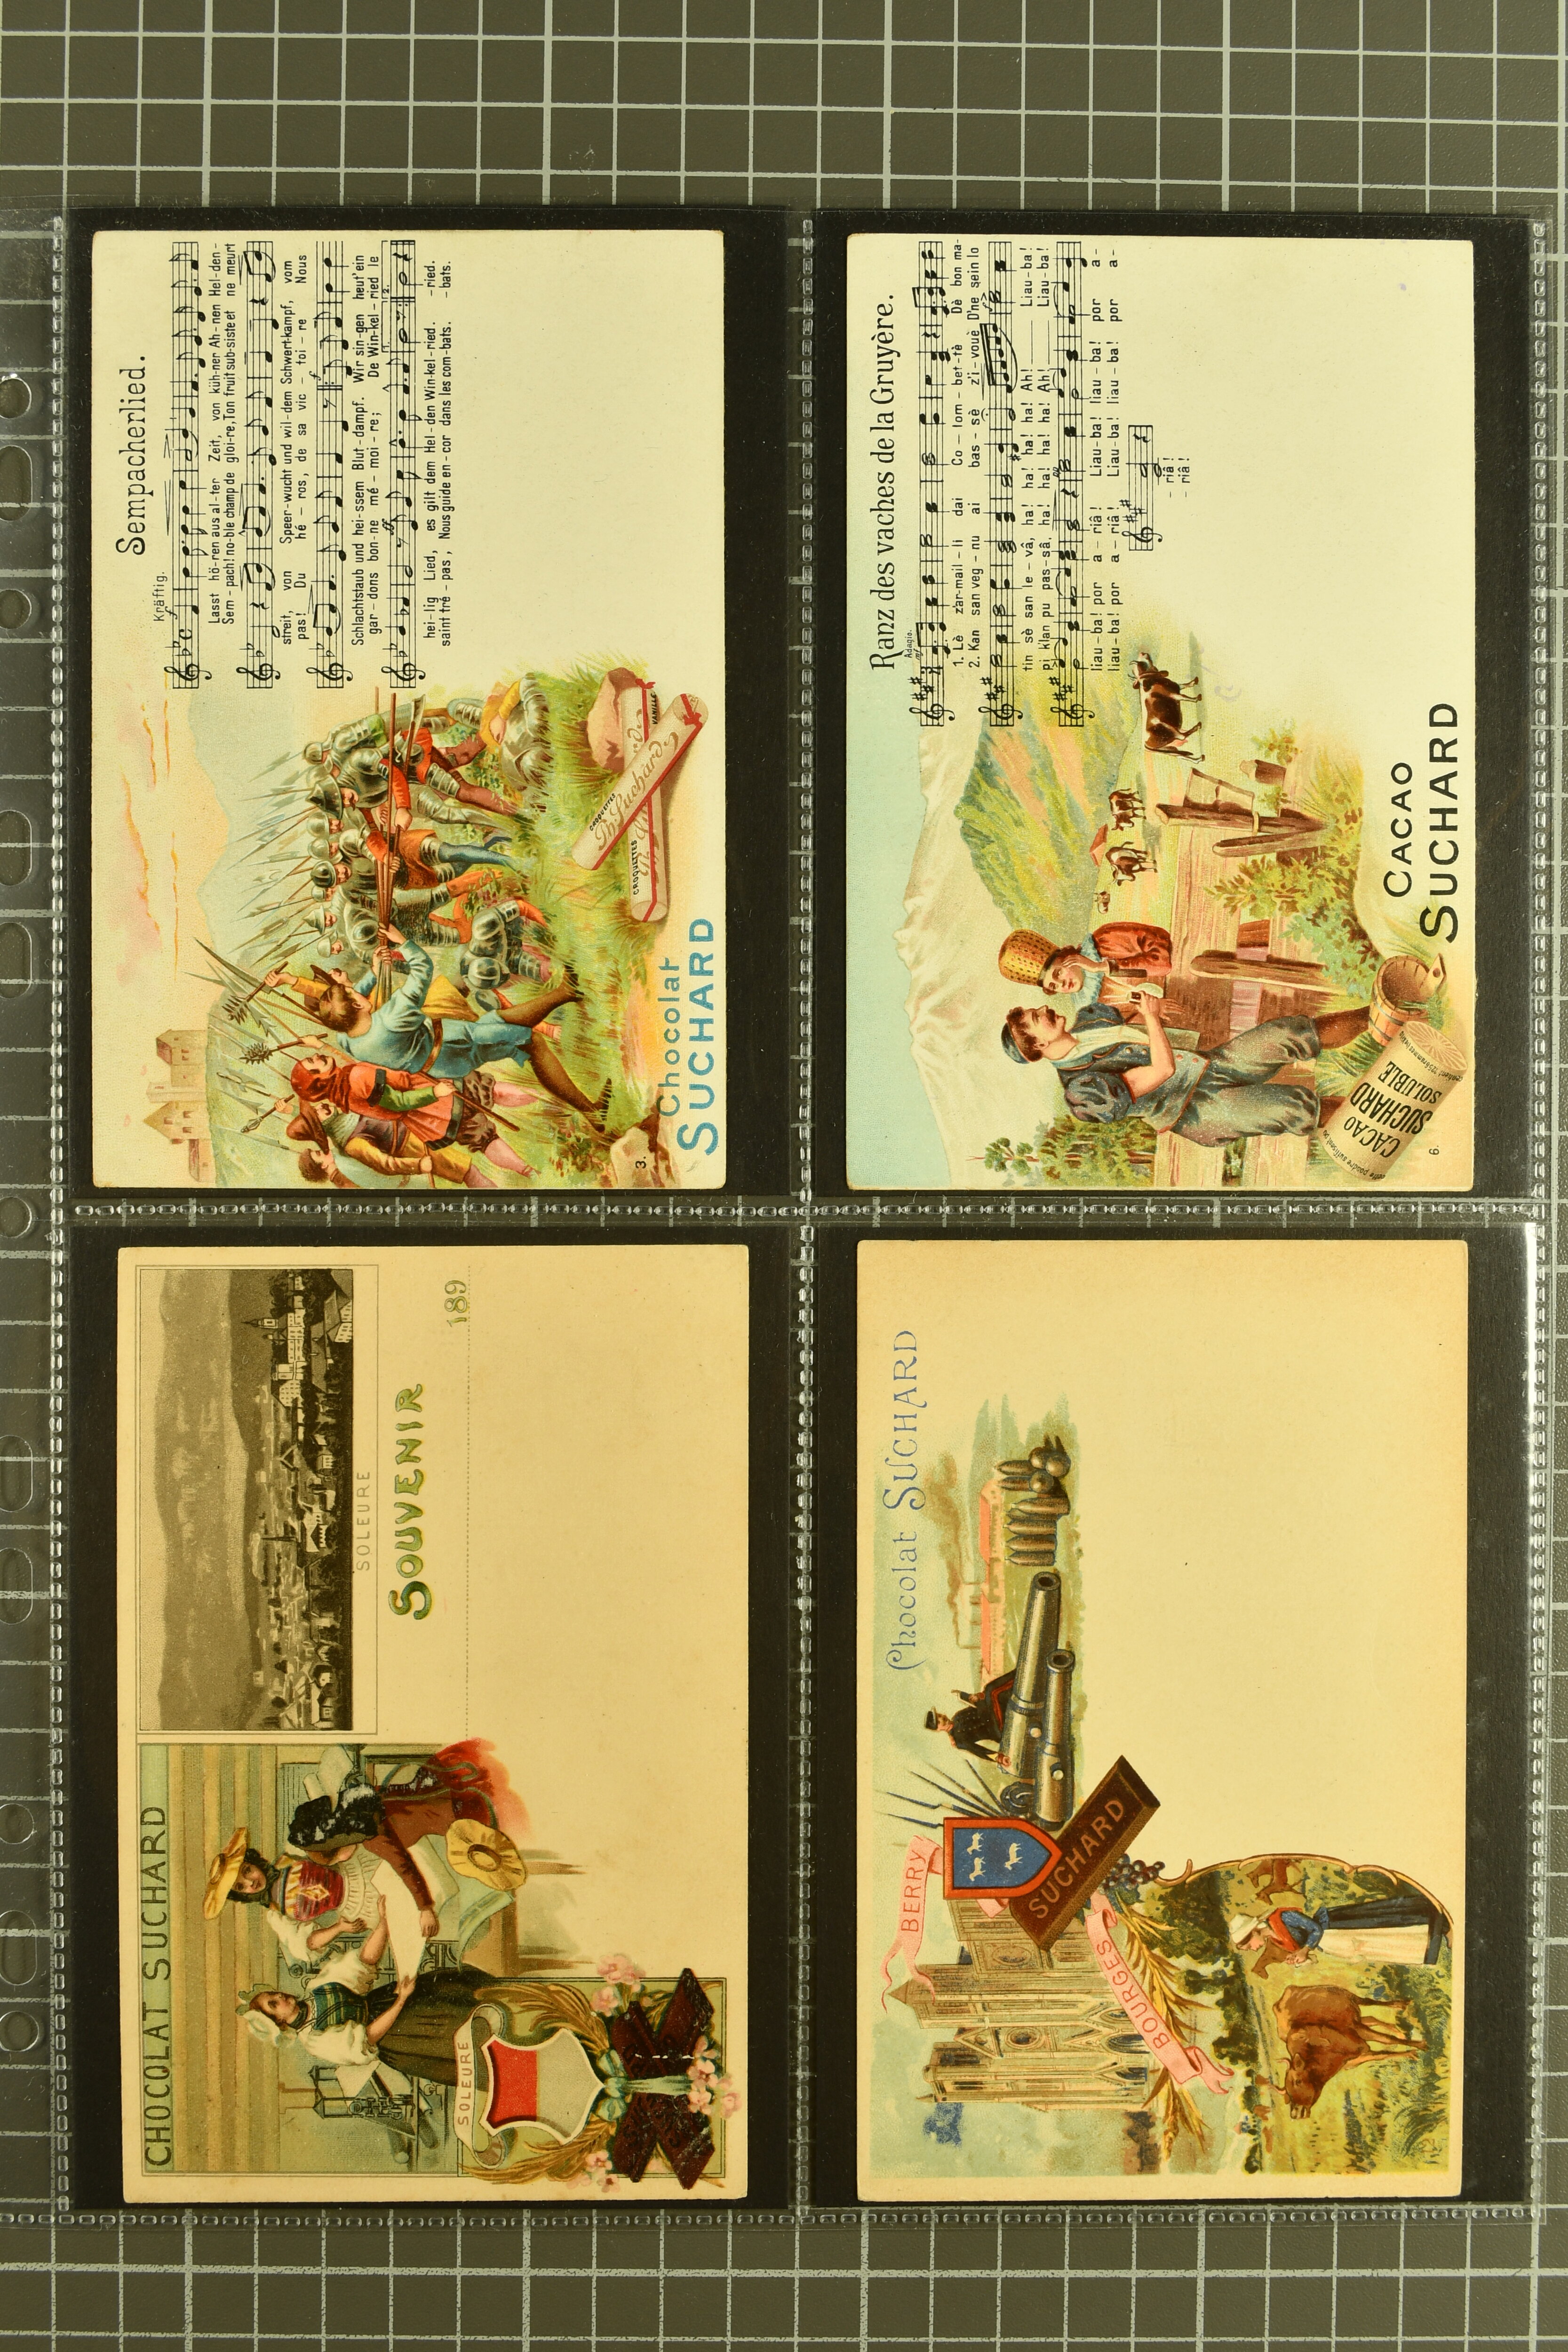 Sempacherlied.
Kräftig.
Lasst hö-ren aus al-ter Zeit, von küh-ner Ah-nen Hel-den-
Sem-pach! no-ble champ de gloi-re, Ton fruit sub-siste et ne meurt
streit, von Speer-wucht und wil-dem Schwert-kampf, vom
pas! Du hé-ros, de sa vic-toi-re Nous
Schlachtstaub und hei-ssem Blut-dampf. Wir sin-gen heut' ein
gar-dons bon-ne mé-moi-re; De Win-kel-ried le
1. 2.
hei-lig Lied, es gilt dem Hel-den Win-kel-ried. -ried.
saint tré-pas, Nous guide en-cor dans les com-bats. -bats.
CROQUETTES
Ph. Suchard
VANILLE
CROQUETTES
3.
Chocolat
SUCHARD
Ranz des vaches de la Gruyère.
Adagio.
mf
1. Lè zar-mail-li dai Co-lom-bet-tè Dè bon ma-
2. Kan san veg-nu ai bas-sè z'i-vouè D'ne sein lo
tin sè san le-vâ, ha! ha! ha! ha! Ah! Liau-ba!
pi klan pu pas-sâ, ha! ha! ha! ha! Ah! Liau-ba!
liau-ba! por a-riâ! Liau-ba! liau-ba! por a-
liau-ba! por a-riâ! Liau-ba! liau-ba! por a-
-riâ!
-riâ!
CACAO
SUCHARD
SOLUBLE
6.
CACAO
SUCHARD
CHOCOLAT SUCHARD
SOLEURE
SOUVENIR
189
SOLEURE
Chocolat SUCHARD
BERRY
SUCHARD
BOURGES